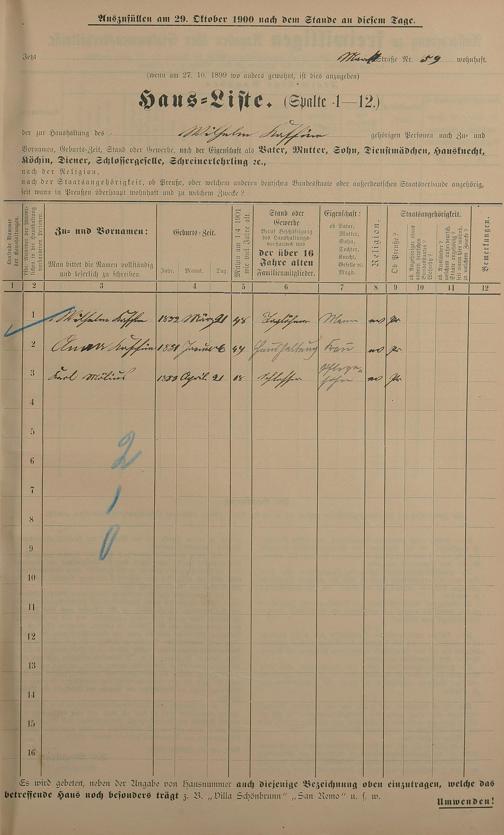 Auszufüllen am 29. Oktober 1900 nach dem Stande an diesem Tage.
Jetzt Straße Nr. 59 wohnhaft.
(wenn am 27. 10. 1899 wo anders gewohnt, ist dies anzugeben)
Haus-Liste. (Spalte 1—12.)
der zur Haushaltung des Wilhelm gehörigen Personen nach Zu- und
Vornamen, Geburts-Zeit, Stand oder Gewerbe, nach der Eigenschaft als Vater, Mutter, Sohn, Dienstmädchen, Hausknecht,
Köchin, Diener, Schlossergeselle, Schreinerlehrling ec.,
nach der Religion,
nach der Staatsangehörigkeit, ob Preuße, oder welchem anderen deutschen Bundesstaate oder außerdeutschen Staatsverbande angehörig,
seit wann in Preußen überhaupt wohnhaft und zu welchem Zwecke?
Zu- und Vornamen:
Man bittet die Namen vollständig
und leserlich zu schreiben.
Geburts-Zeit.
Jahr. Monat. Tag.
Stand oder
Gewerbe
der über 16
Jahre alten
Familienmitglieder.
Eigenschaft:
ob Vater,
Mutter,
Sohn,
Tochter,
Knecht,
Geselle ec.
Magd.
Religion.
Staatsangehörigkeit.
Ob Preuße?
Bemerkungen.
1 2 3 4 5 6 7 8 9 10 11 12
1 Wilhelm März 21 48 Tagelöhner Mann ev Pr
2 Januar 6 47 Haushaltung Frau ev Pr
3 Karl Möbius April 21 18 Schlosser Pflege- ev Pr
sohn
4
5
6
7
8
9
10
11
12
13
14
15
16
2
1
0
Es wird gebeten, neben der Angabe von Hausnummer auch diejenige Bezeichnung oben einzutragen, welche das
betreffende Haus noch besonders trägt z. B. „Villa Schönbrunn" „San Remo" u. s. w.
Umwenden!